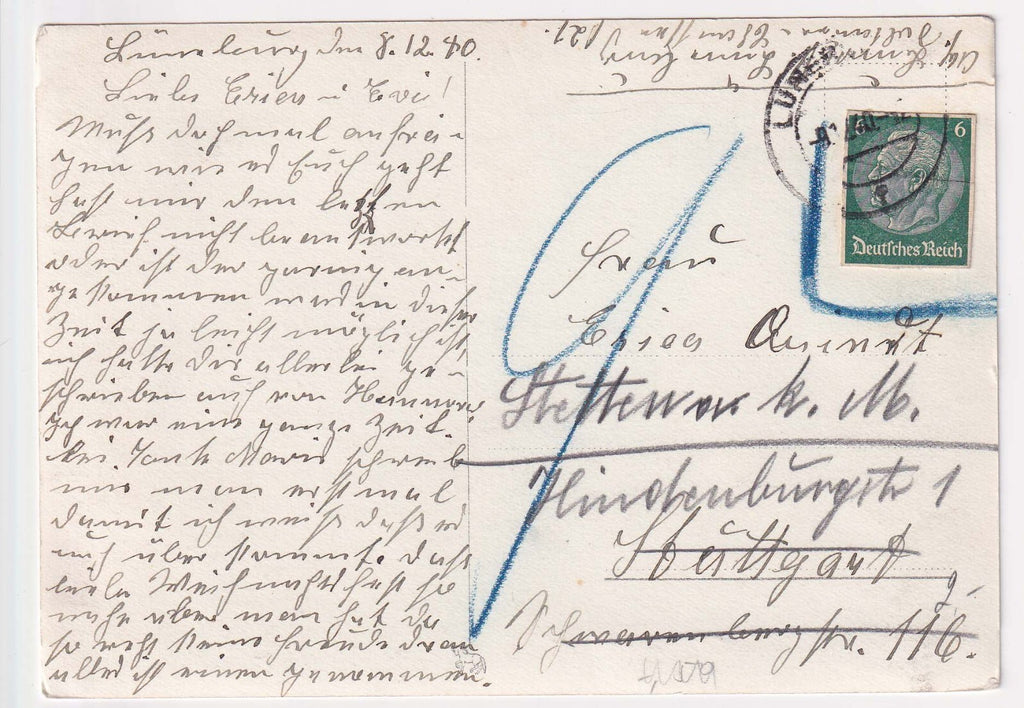 Lüneburg den 8.12.40.
Liebe Erica u Evi!
Muß doch mal anfra-
gen wie es Euch geht
hast mir den letzten
Brief nicht beantwortet
oder ist der gar nicht an-
gekommen was in dieser
Zeit ja leicht möglich ist,
ich hatte Dir allerlei ge-
schrieben auch von Hannover
Ich war eine ganze Zeit
bei Tante Marie schreib
mir man erstmal
damit ich weiß daß es
auch über kommt. Das
liebe Weihnachtsfest so
nahe aber man hat da
so recht keine Freude dran
alles ist einen genommen.
Lüneburg
121.
LÜNEB
6
Deutsches Reich
Frau
Erica
Stetten a. k. M.
Hindenburgstr 1
Stuttgart
Schwarenbergstr. 116.